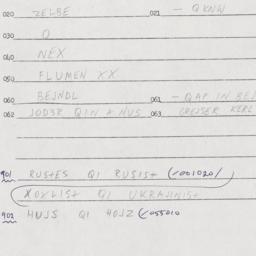 020 ZELBE 021 - QKNW
030 Q
040 NEX
050 FLUMEN XX
060 BEJNDL 061 - QAP IN BEJ
062 063 GREJSER KERL
901 RUSTES QI RUSIST (√001020/
XOXLIST QI UKRAJINIST
902 HUJS QI HOJZ (√055010